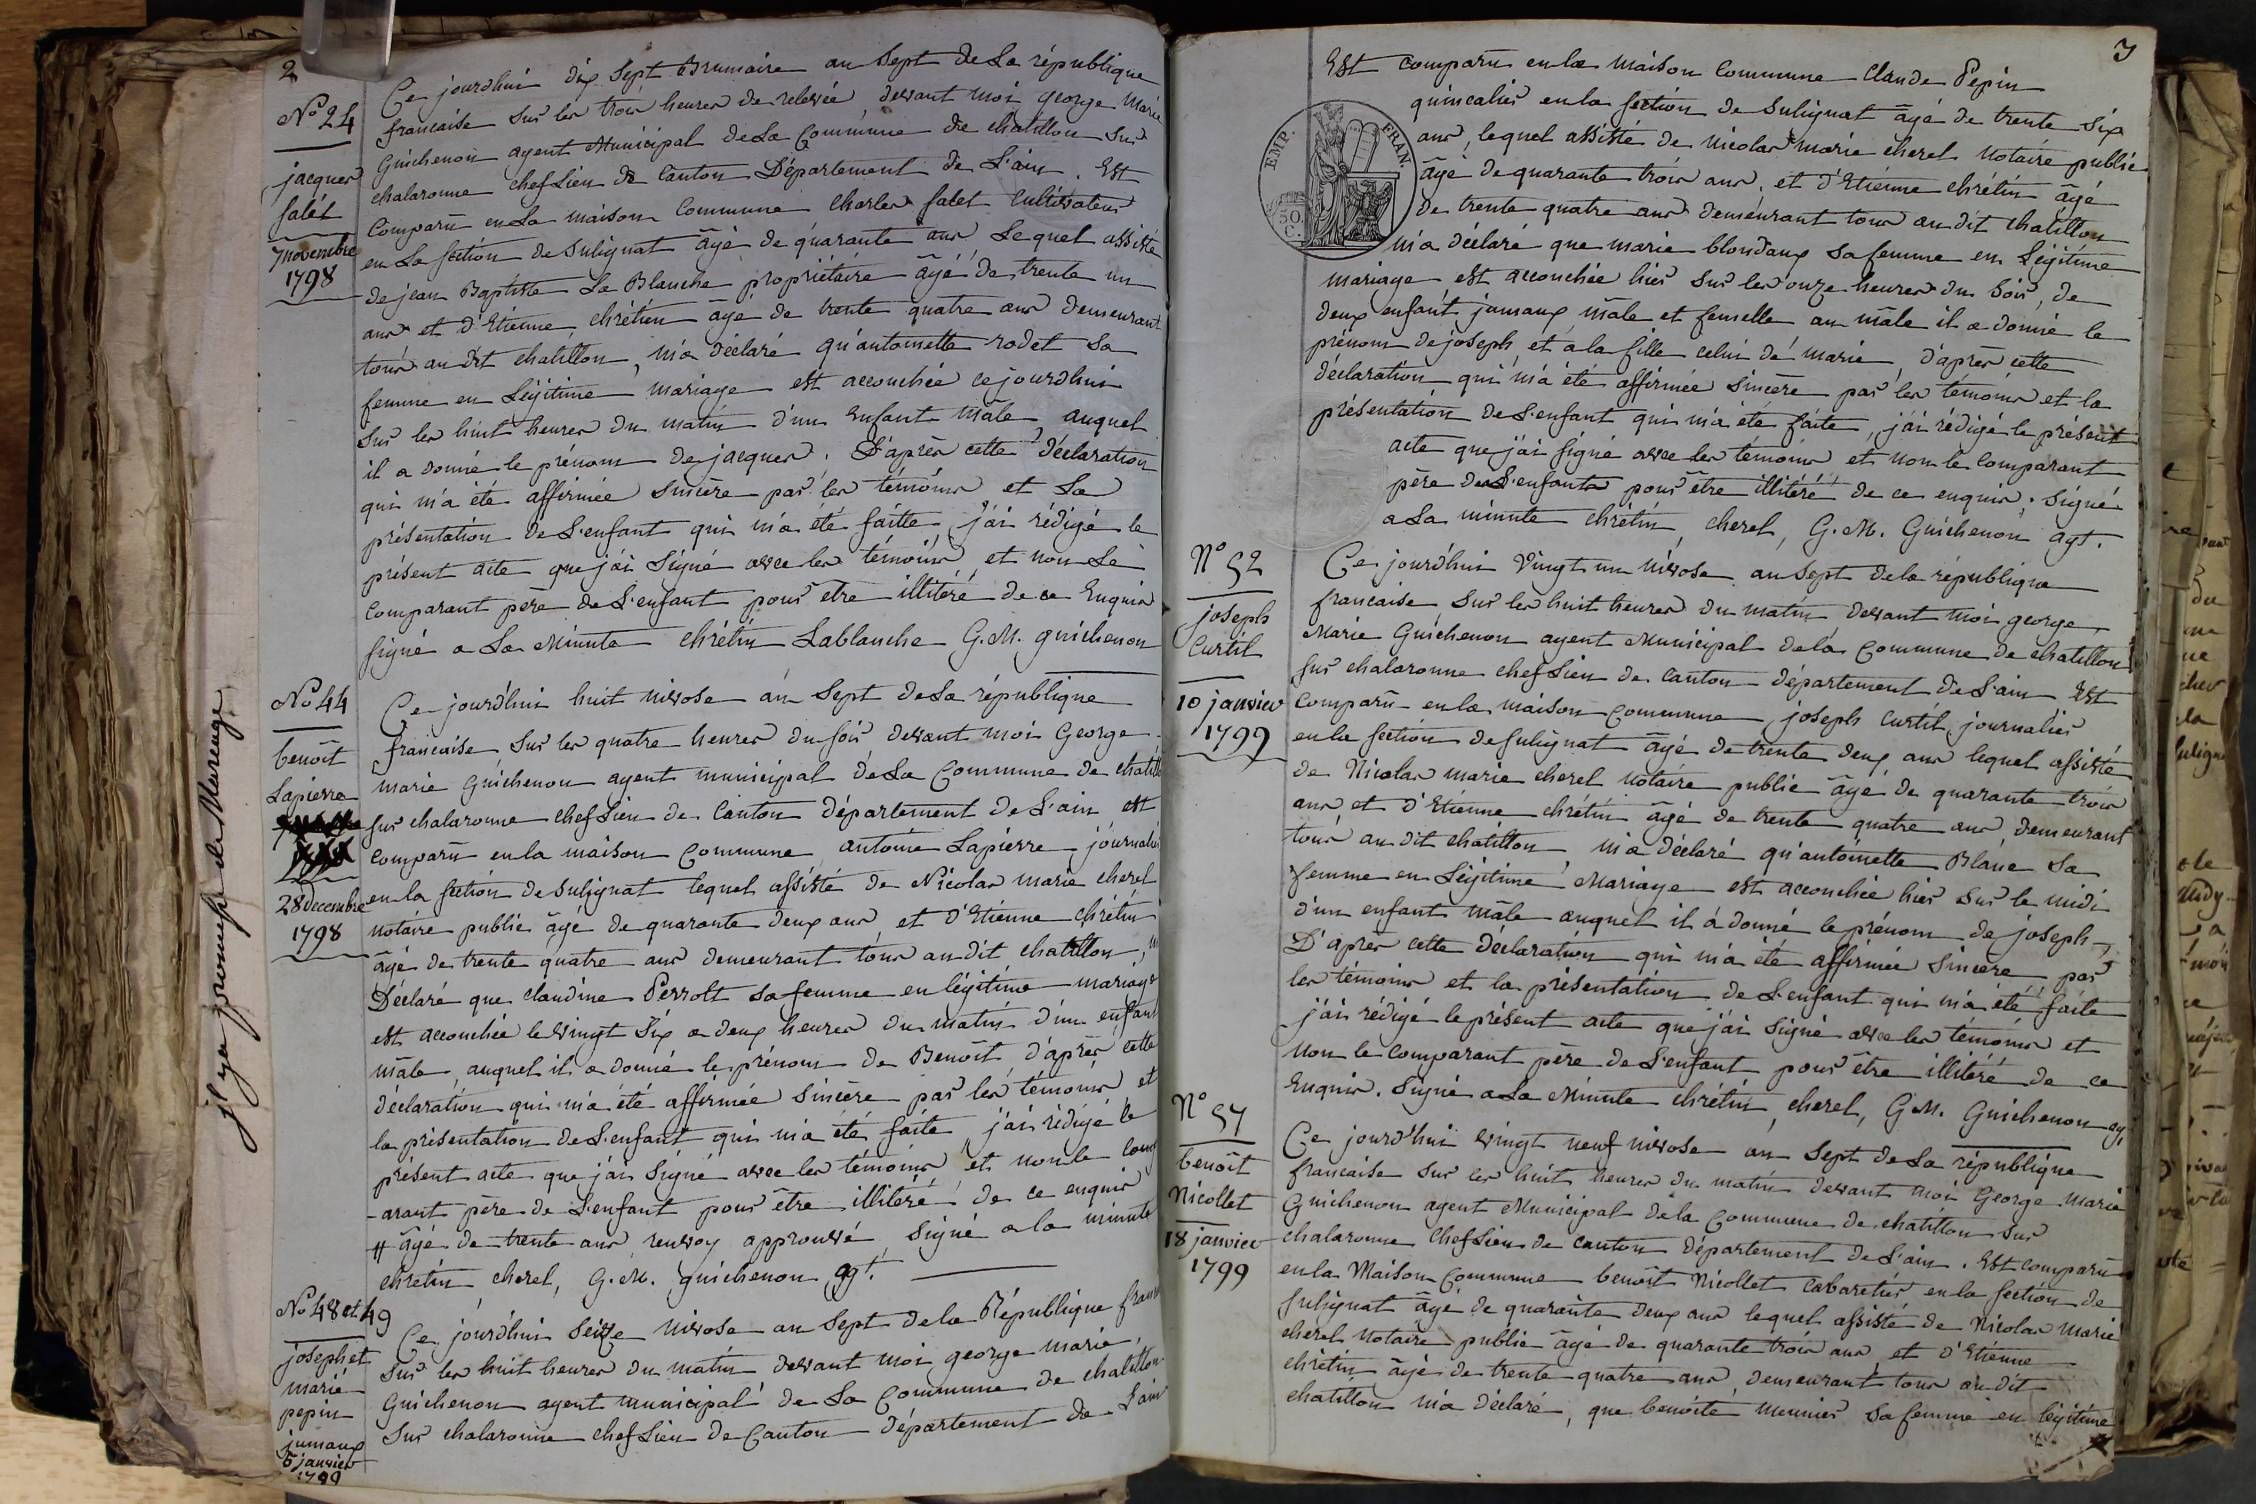 2
Ce jourdhui dix sept Brumaire an sept de La république
française sur les trois heures de relevée devant moi george Marie
Guichenon agent Municipal de La Commune de chatillon sur
chalaronne chef Lieu de Canton Département de L'ain. Est
Comparû en La maison Commune Charles falet Cultivateur
en La section de Sulignat âgé de quarante ans Lequel assisté
de jean Baptiste La Blanche propriétaire âgé de trente un
ans et d'Etienne chrétien âgé de trente quatre ans demeurant
tous au dit chatillon, m'a déclaré qu'antoinette rodet sa
femme en Légitime mariage est accouchée cejourdhui
sur les huit heures du matin d'un Enfant mâle, auquel
il a donné le prénom de jacques. D'après cette déclaration
qui m'a été affirmée sincère par les témoins et La
présentation de L'enfant qui m'a été faitte, j'ai rédigé le
présent acte que j'ai signé avec les témoins et non Le
Comparant père de L'enfant pour etre illitéré de ce Enquis
signé a La Minute chrétin Lablanche G.M. guichenon
N° 24
jacques
falet
7 novembre
1798
Ce jourd'hui huit nivose an sept de La république
francaise sur les quatre heures du soir devant moi George
marie Guichenon agent municipal de La Commune de chatill
sur chalaronne chef Lieu de Canton département de L'ain est
comparû en la maison Commune antoine Lapierre journalie
en la section de sulignat lequel assisté de Nicolas marie cherel
notaire public âgé de quarante deux ans, et d'Etienne chrétin
âgé de trente quatre ans demeurant tous au dit chatillon, m
Déclaré que claudine Perrolt sa femme en légitime mariage
est accouchée le vingt six a deux heures du matin d'un enfant
mâle, auquel il a donné le prénom de Benoît d'après cette
déclaration qui m'a été affirmée sincère par les témoins et
la présentation de L'enfant qui m'a été faite j'ai rédigé le
présent acte que j'ai signé avec les témoins et non le comp
-arant père de L'enfant pour être illitéré de ce enquis
# âgé de trente ans renvoy approuvé signé a la minute
chretin, cherel, G.M. guichenon agt.
N° 44
benoît
Lapierre
28 decembre
1798
Ce jourd'hui seize nivose an sept de la République franc
sur les huit heures du matin devant moi george marie
Guichenon agent municipal de La Commune de chatillon
sur chalaronne chef Lieu de Canton département de L'ain
N° 48 et 49
joseph et
marie
pepin
jumaux
5 janvier
1799
jl y a promesse de Mareage
3
Est comparû en la maison Commune Claude Pepin
quincalier en la section de Sulignat âgé de trente six
ans, lequel assisté de nicolas marie cherel notaire public
âgé de quarante trois ans, et d'Etienne chrétin âgé
de trente quatre ans demeurant tous au dit chatillon
m'a déclaré que marie blondaux sa femme en Légitime
mariage est accouchée hier sur les onze heures du soir, de
deux enfant jumaux mâle et femelle au mâle il a donné le
prénom de joseph et a la fille celui de marie, d'après cette
déclaration qui m'a été affirmée sincère par les témoins et la
présentation de L'enfant qui m'a été faite, j'ai rédigé le présent
acte que j'ai signé avec les témoins et non le comparant
père de L'enfants pour être illitéré de ce enquis; signé
a la minute chrétin, cherel, G.M. Guichenon agt.
EMP. FRAN.
50
C.
N° 52
joseph
Curtil
10 janvier
1799
Ce jourd'hui vingt un nivose an sept de la république
francaise sur les huit heures du matin devant moi george
Marie Guichenon agent Municipal de la Commune de chatillon
sur chalaronne chef Lieu de Canton département de L'ain Est
Comparû en la maison Commune joseph Curtil journalier
en la section de sulignat âgé de trente deux ans lequel assisté
de Nicolas marie cherel notaire public âgé de quarante trois
ans et d'Etienne chrétin âgé de trente quatre ans demeurant
tous au dit chatillon m'a déclaré qu'antoinette Blanc sa
femme en Légitime Mariage est accouchée hier sur le midi
d'un enfant mâle auquel il a donné le prénom de joseph,
D'après cette déclaration qui m'a été affirmée sincère par
les témoins et la présentation de L'enfant qui m'a été faite
j'ai rédigé le présent acte que j'ai signé avec les témoins et
non le comparant père de L'enfant pour être illitéré de ce
Enquis. signé a La Minute chrétin, cherel, G.M. Guichenon ag,
N° 57
benoît
Nicollet
18 janvier
1799
Ce jourd'hui vingt neuf nivose an sept de La république
francaise sur les huit heures du matin devant moi George marie
Guichenon agent Municipal de la Commune de chatillon sur
chalaronne chef Lieu de canton département de L'ain. Est comparû
en la Maison Commune benoît Nicollet cabaretier en la section de
sulignat âgé de quarante deux ans lequel assisté de Nicolas marie
cherel notaire public âgé de quarante trois ans et d'Etienne
chrétin âgé de trente quatre ans, demeurant tous au dit
chatillon m'a déclaré, que benoîte meunier sa femme en légitime